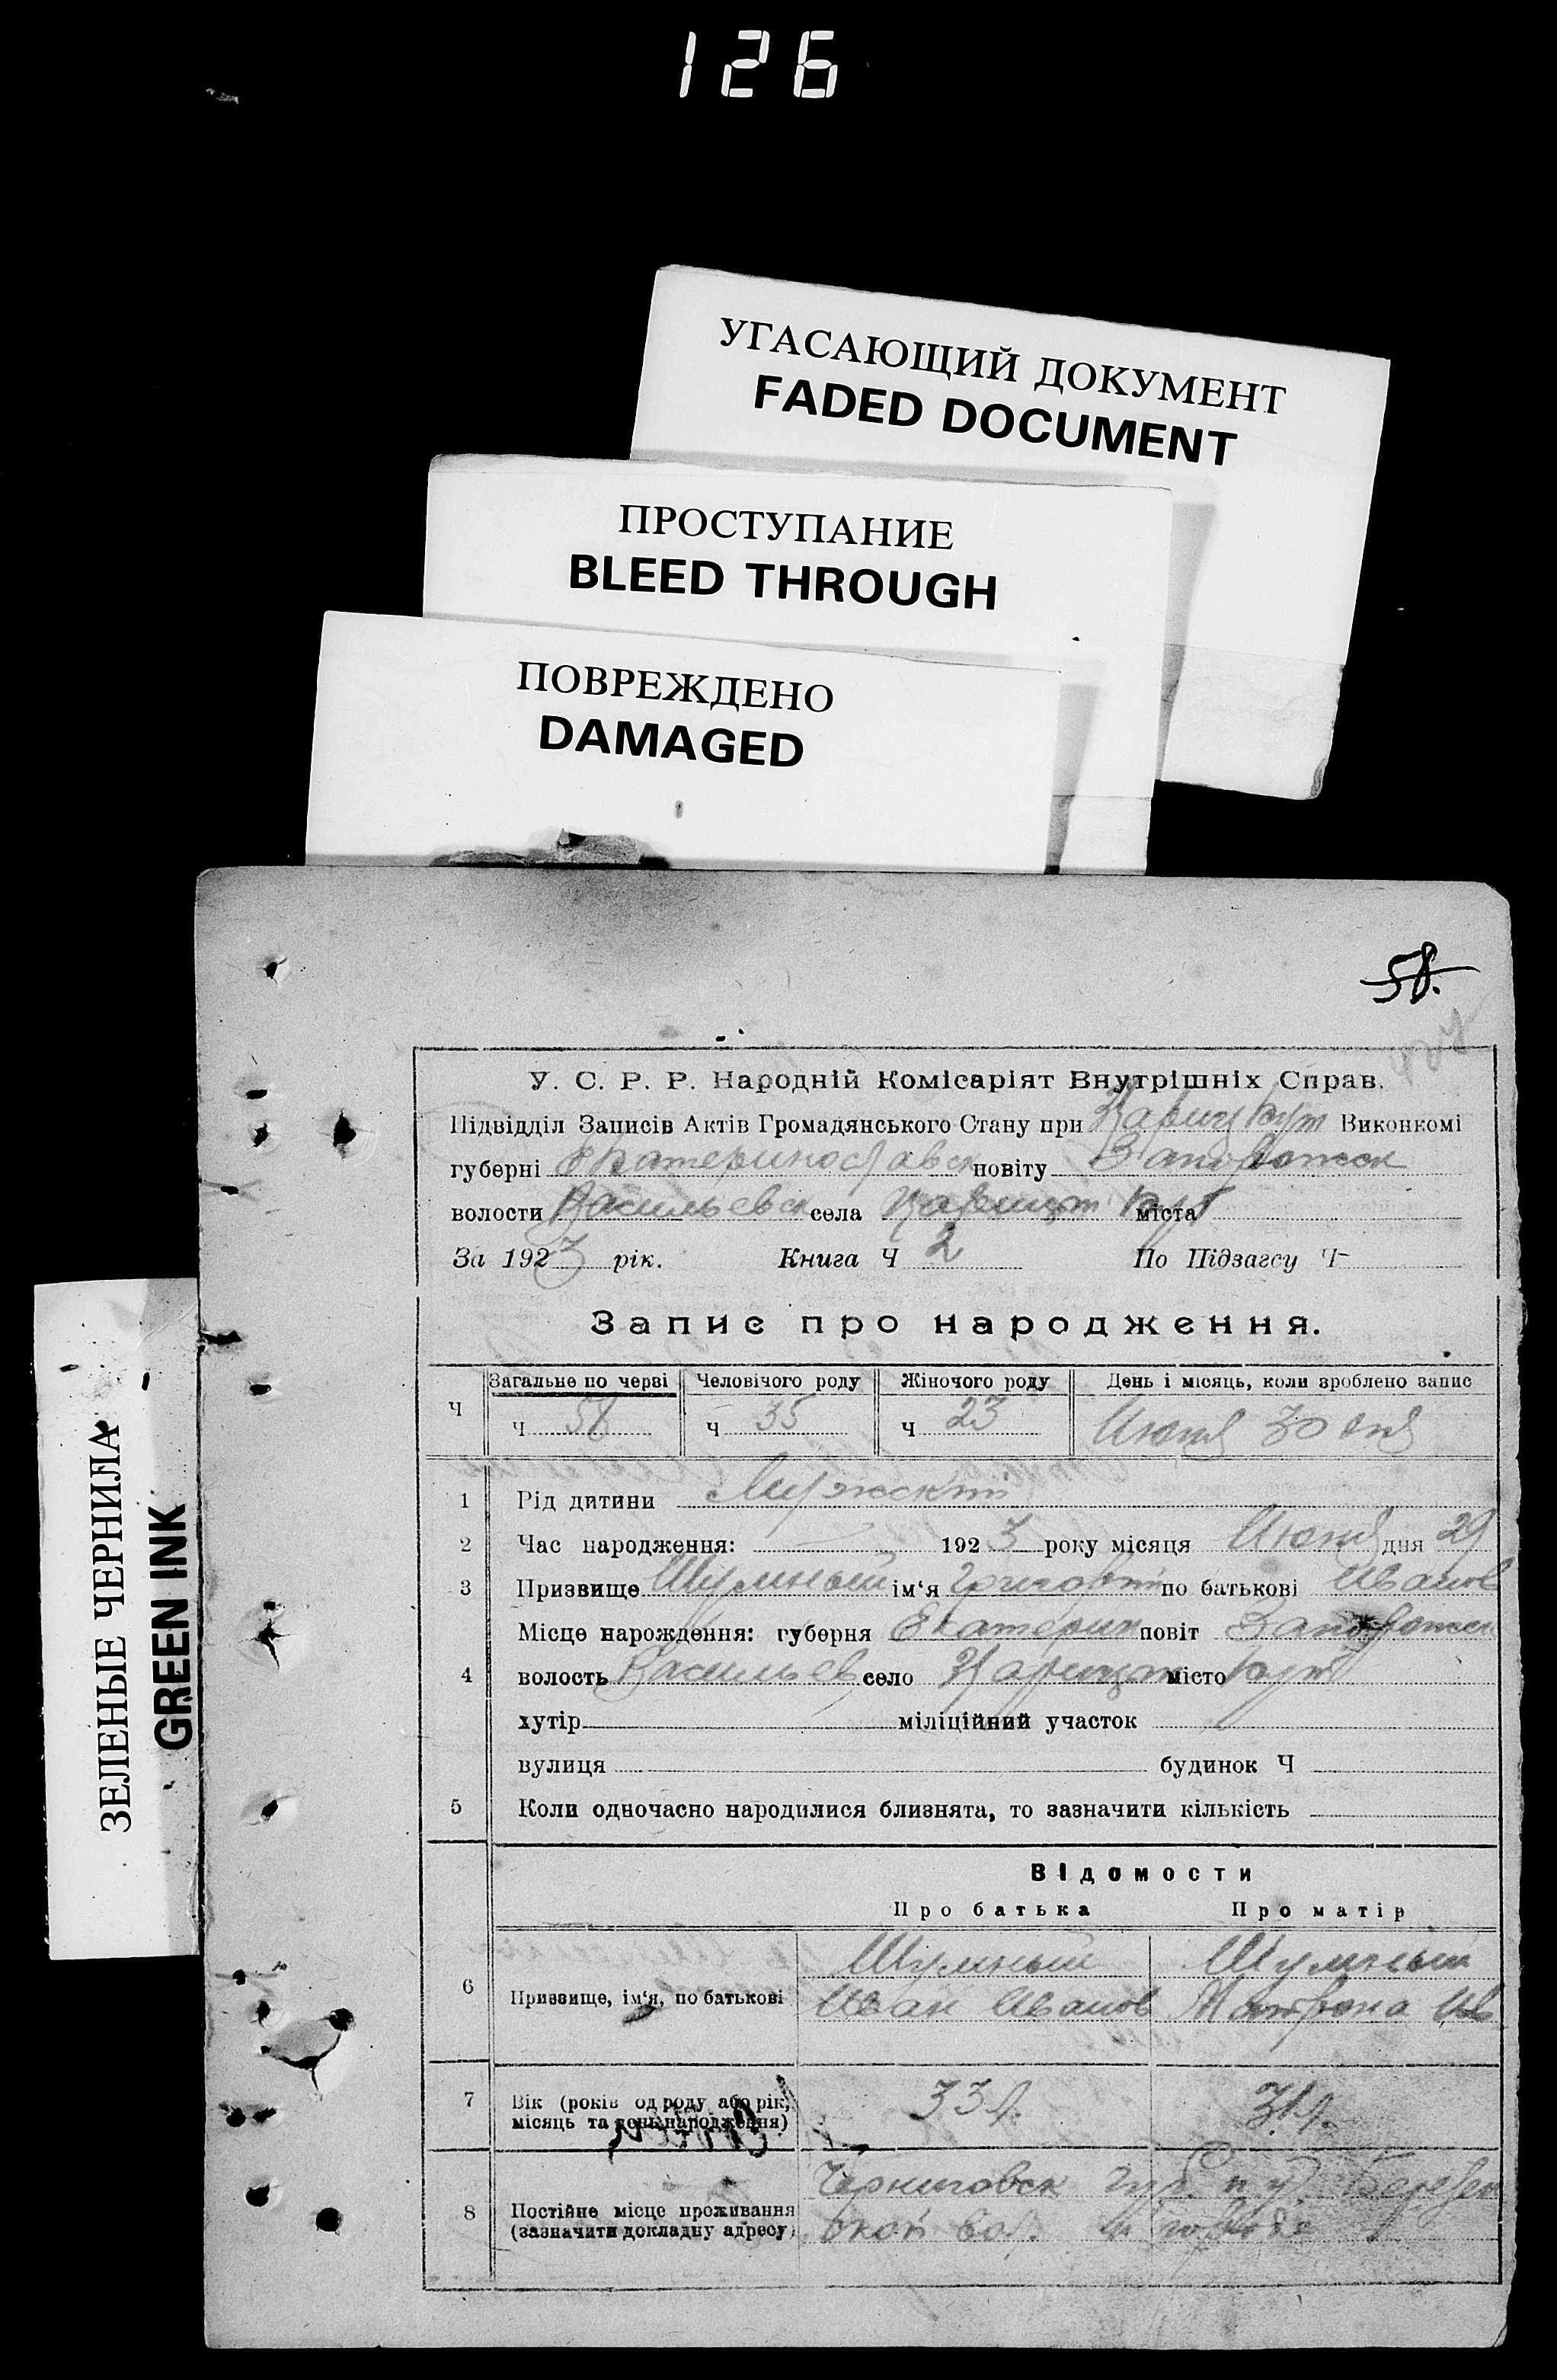 126
УГАСАЮЩИЙ ДОКУМЕНТ
FADED DOCUMENT
ПРОСТУПАНИЕ
BLEED THROUGH
ПОВРЕЖДЕНО
DAMAGED
ЗЕЛЕНЫЕ ЧЕРНИЛА
GREEN INK
58.
У. С. Р. Р. Народній Комісаріят Внутрішніх Справ.
Підвідділ Записів Актів Громадянського Стану при Виконкомі
губерні Екатеринославск повіту Запорожск
волости Васильевск села Царицын Кут міста
За 1923 рік. Книга Ч 2 По Підзагсу Ч
Запис про народження.
Ч Загальне по черві Человічого роду Жіночого роду День і місяць, коли зроблено запис
Ч 58 Ч 35 Ч 23 Июня 30 дня
1 Рід дитини
2 Час народження: 1923 року місяця Июня дня 29
3 Призвище Шумный ім'я Григорий по батькові Иванов
Місце нарождення: губерня Екатерин повіт Запорожск
4 волость Васильев село Царицын місто Кут
хутір міліційний участок
вулиця будинок Ч
5 Коли одночасно народилися близнята, то зазначити кількість
Відомости
Про батька Про матір
6 Призвище, ім'я, по батькові Шумный Шумный
Иван Иванов Матрона Ив
7 Вік (років од роду або рік, місяць та день народження) 33 г. 31 г.
8 Постійне місце проживання (зазначити докладну адресу) Черниговск губ.